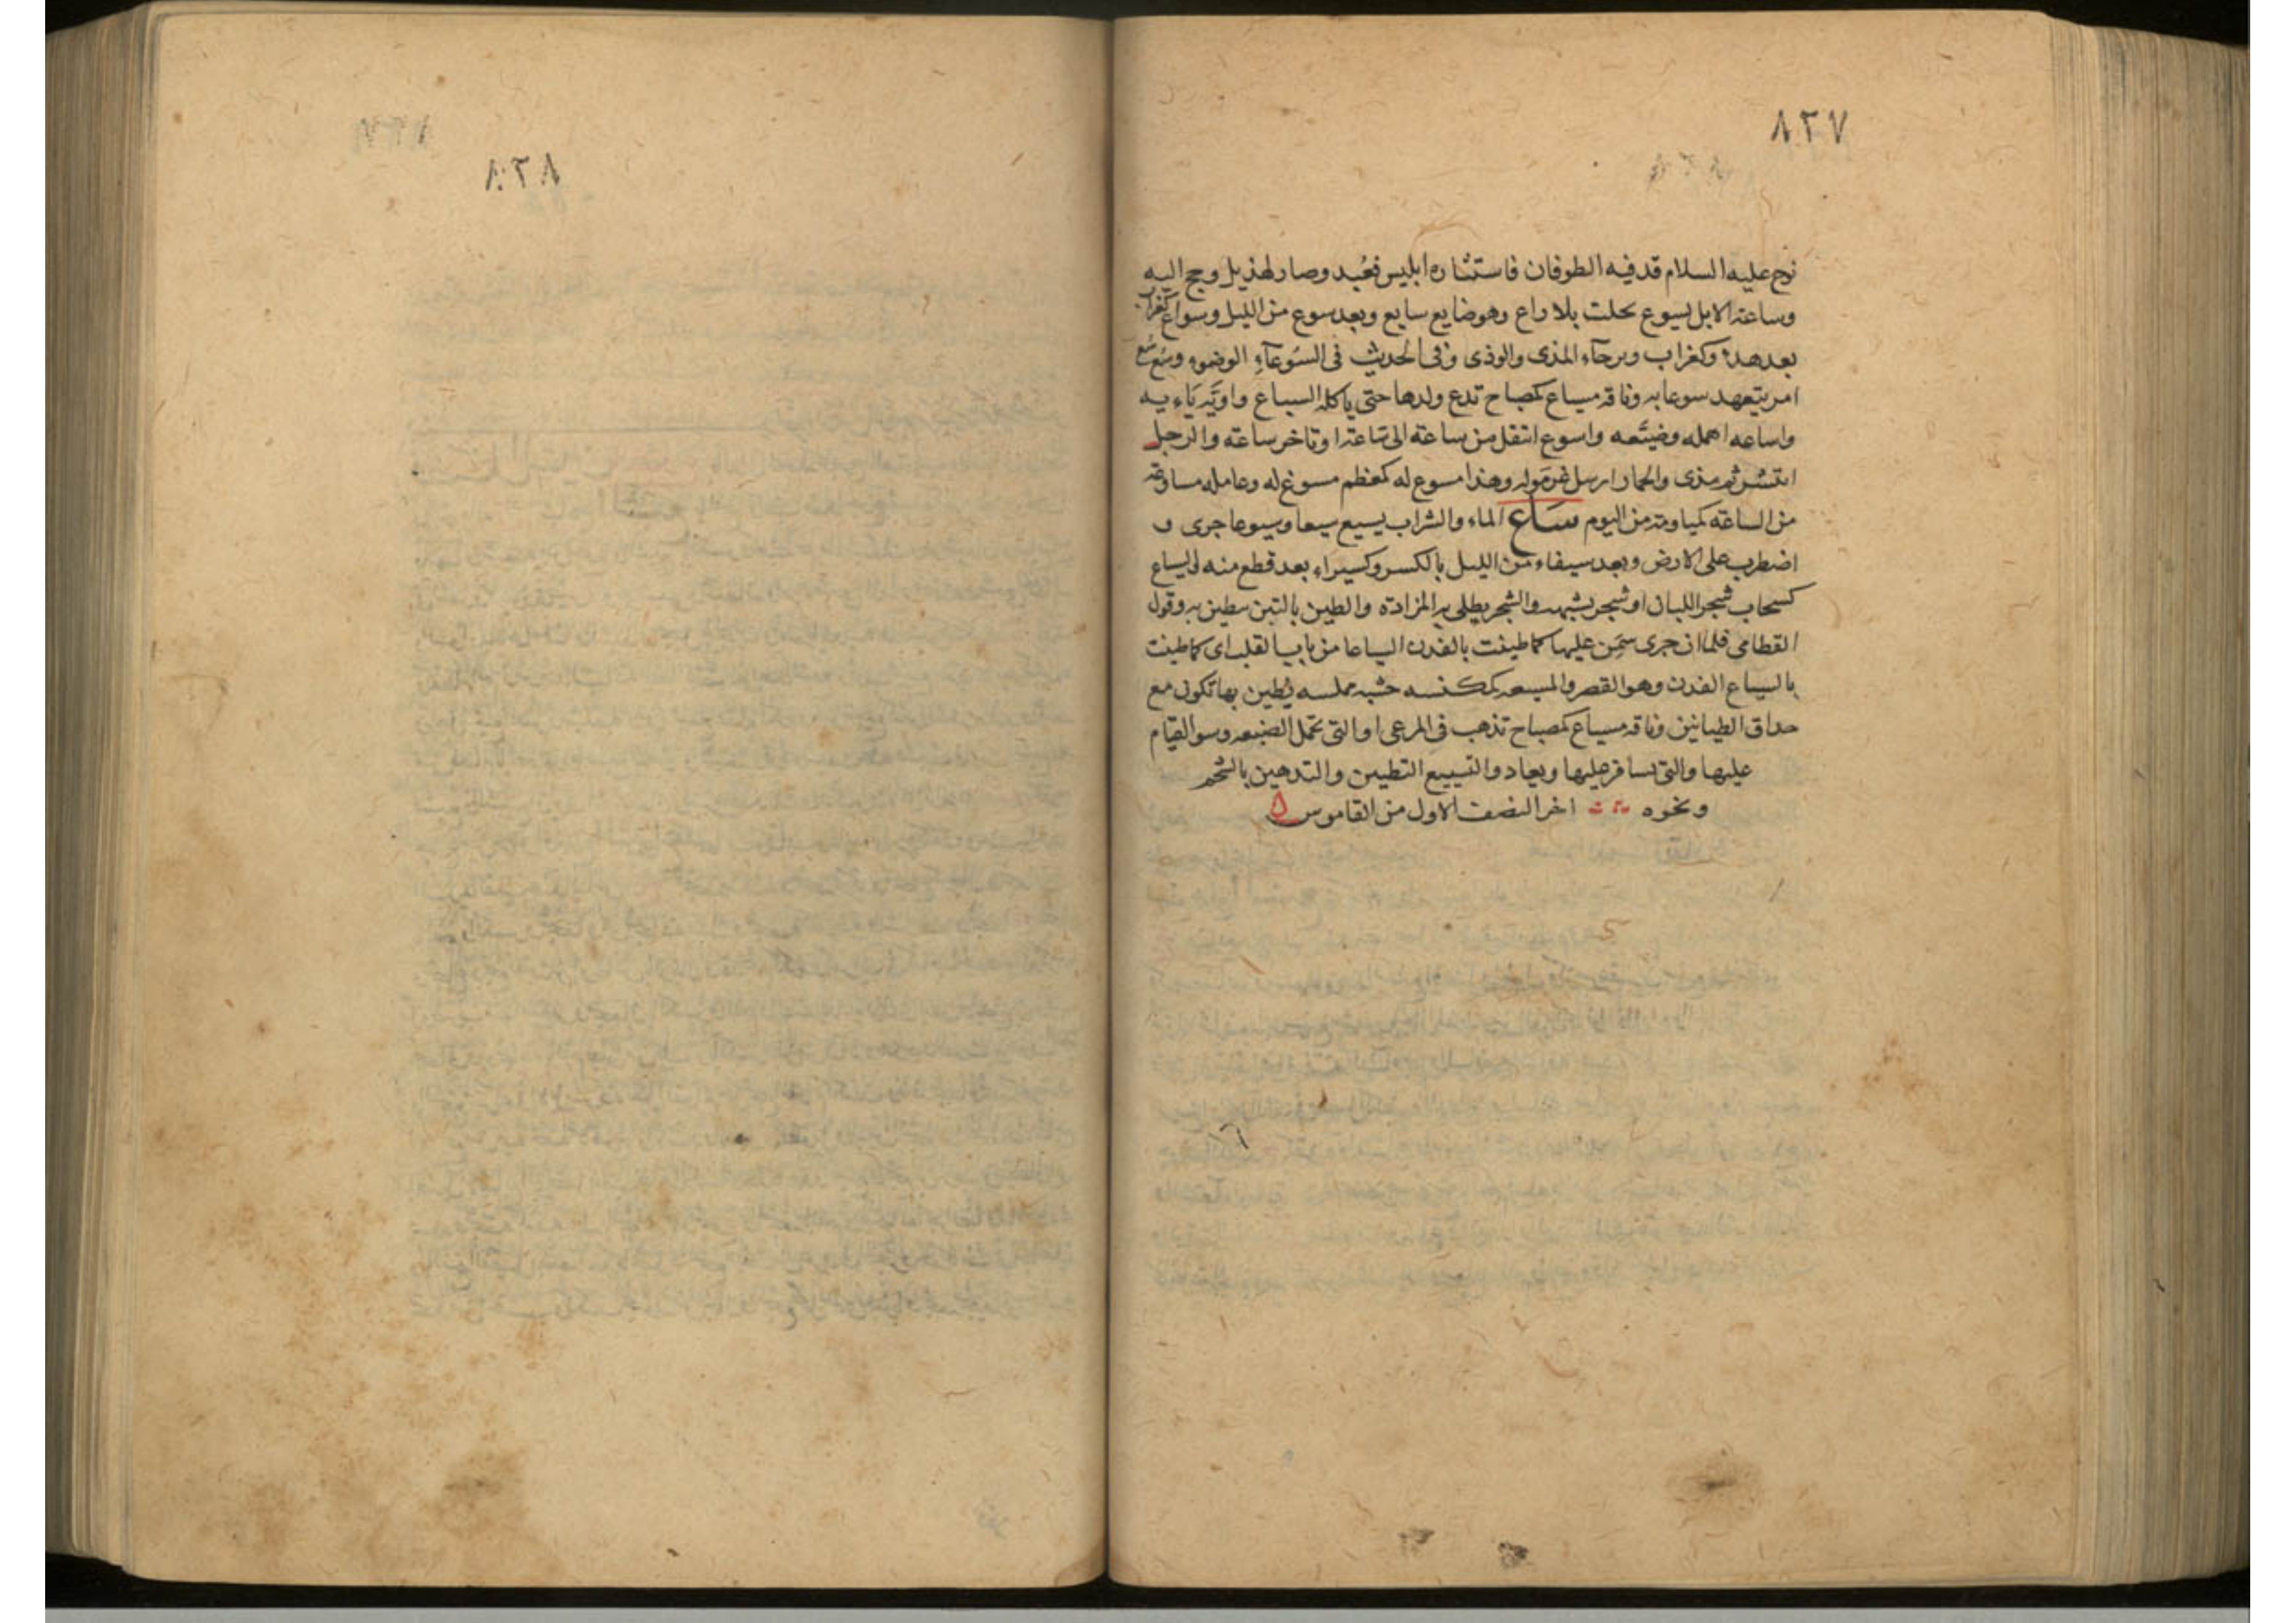 ٨٢٧
نوح عليه السلام قدفنه الطوفان فاستثاره ابليس فعُبد وصار لهذيل وحج اليه
وساعت الابل تسوع تخلت بلا راع وهو ضايع سايع وبعد سوع من الليل وسواع كغراب
بعد هدء وكغراب وبرحآء المذى والوذى وفى الحديث فى السُوعآءِ الوضوء وسُع سُع
امر بتعهد سوعايه وناقة مسياع كمصباح تدع ولدها حتى ياكله السباع واويّه يَاءيه
واساعه اهمله وضيّعه واسوع انتقل من ساعة الى ساعة او تاخر ساعة والرجل
انتشر ثم مذى والحمار ارسل غرموله وهذا مسوع له كمعظم مسوغ له وعامله مساوعة
من الساعة كمياومة من اليوم ساع الماء والشراب يسيع سيعا وسيوعا جرى و
اضطرب على الارض وبعد سيفاء من الليل بالكسر وكسيراء بعد قطع منه والسياع
كسحاب شجر اللبان او شجر يشبهه والشجر يطلى به المزادة والطين بالتبن يطين به وقول
القطامى فلما ان جرى سمن عليها كما طينت بالفدن السياعا من باب القلب اى كما طينت
بالسياع الفدن وهو القصر والمسيعه كمكنسه خشبه مملسه يُطين بها تكون مع
حداق الطيانين وناقة مسياع كمصباح تذهب فى المرعى او التى تحمل الضيعه وسو القيام
عليها والتى يسافر عليها ويعاد والتسييع التطيين والتدهين بالشحم
ونحوه اخر النصف الاول من القاموس
٨٢٨